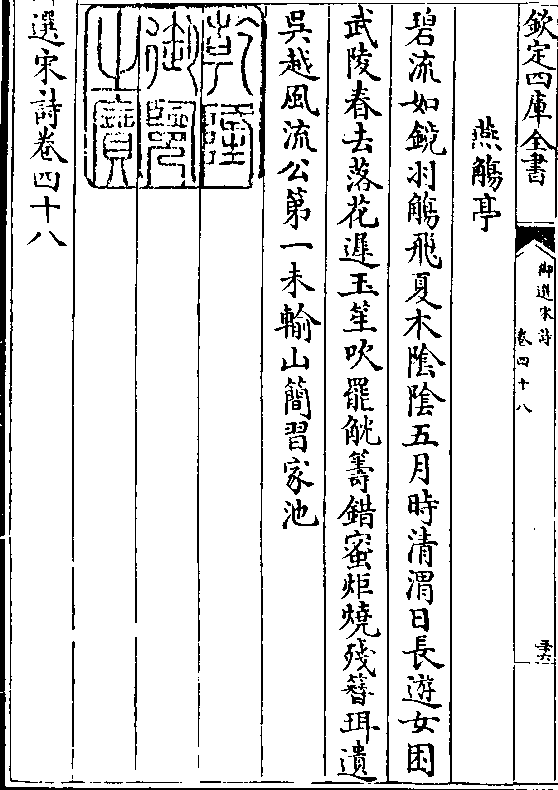 欽定四庫全書
御選宋詩
卷四十八
燕觴亭
碧流如鏡羽觴飛夏木陰陰五月時清渭日長遊女困
武陵春去落花遲玉笙吹罷觥籌錯蜜炬燒殘簪珥遺
吳越風流公第一未輸山簡習家池
乾隆御覽之寶
選宋詩卷四十八